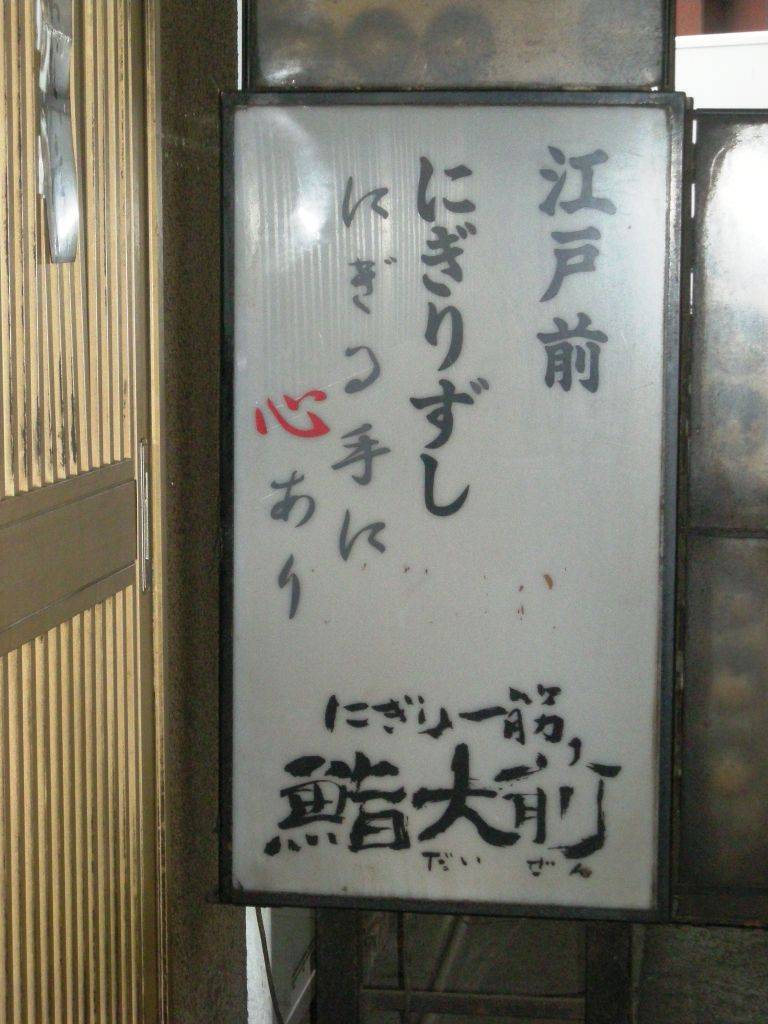 江戸前
にぎりずし
にぎる手に
心あり
にぎり一筋,
鮨大前
だいぜん